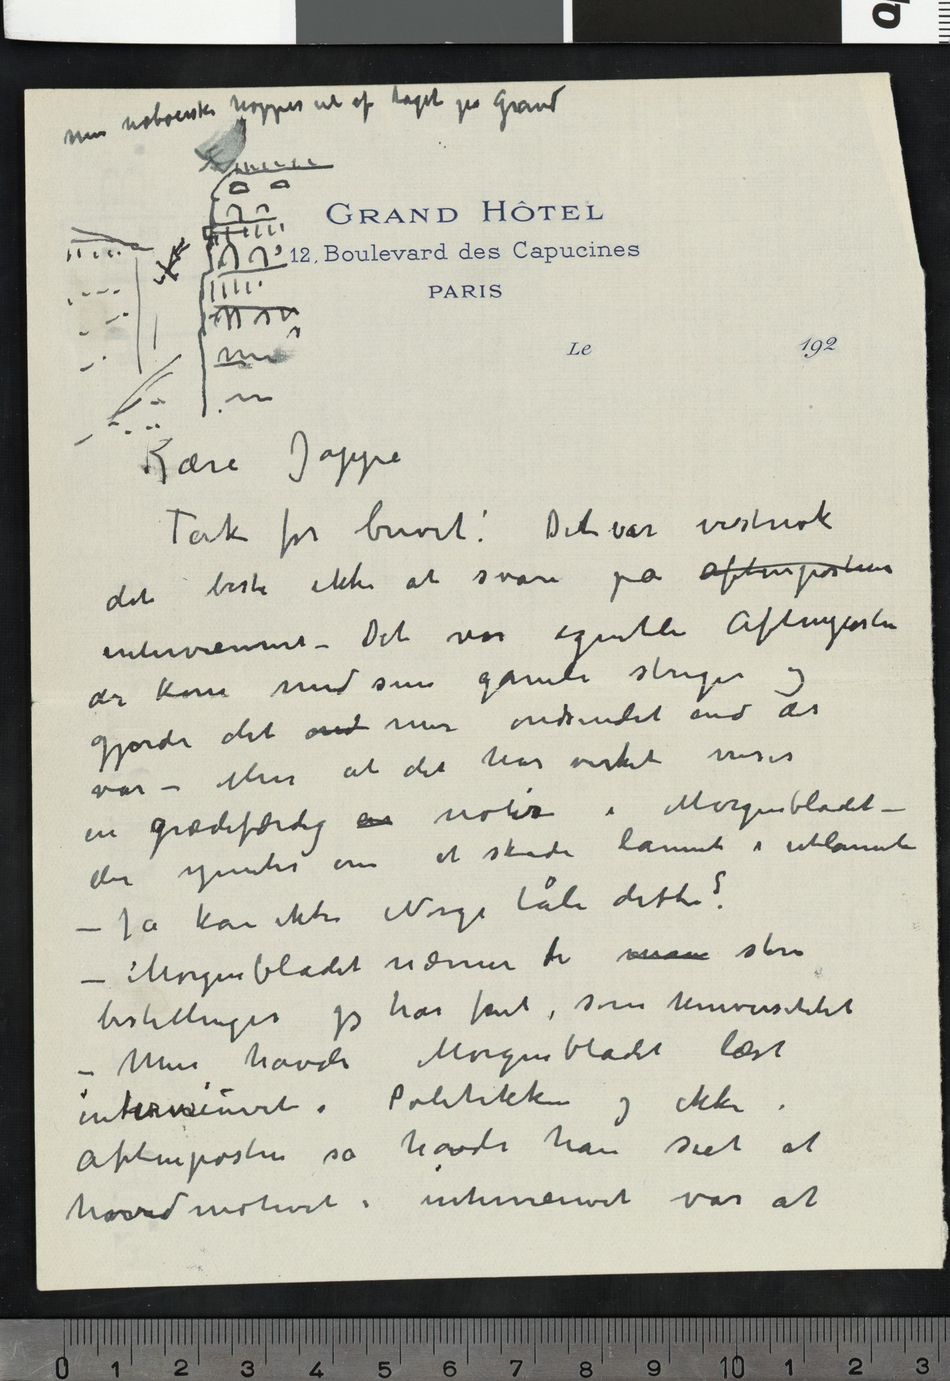 min naboerske hopper ut af taget på Grand
GRAND HÔTEL
12, Boulevard des Capucines
PARIS
Le 192
Kære Jappe
Tak for brevet! Det var vistnok
det beste ikke at svare på aftenposten
interviewet – Det var egentlig Aftenposten
der kom med sine gamle streger og
gjorde det ond mer ondsindet end det
var – Men at det har virket viser
en grædefærdig en notis i Morgenbladet –
der synes om at skade lannet i utlannet
– Ja kan ikke Norge tåle dette?
– Morgenbladet nævner de store
bestillinger jeg har fåt, som Universitetet
– Men havde Morgenbladet læst
interviewet i Politikken og ikke i
Aftenposten så havde han seet at
hovedmotivet i interviewet var at
0 1 2 3 4 5 6 7 8 9 10 1 2 3